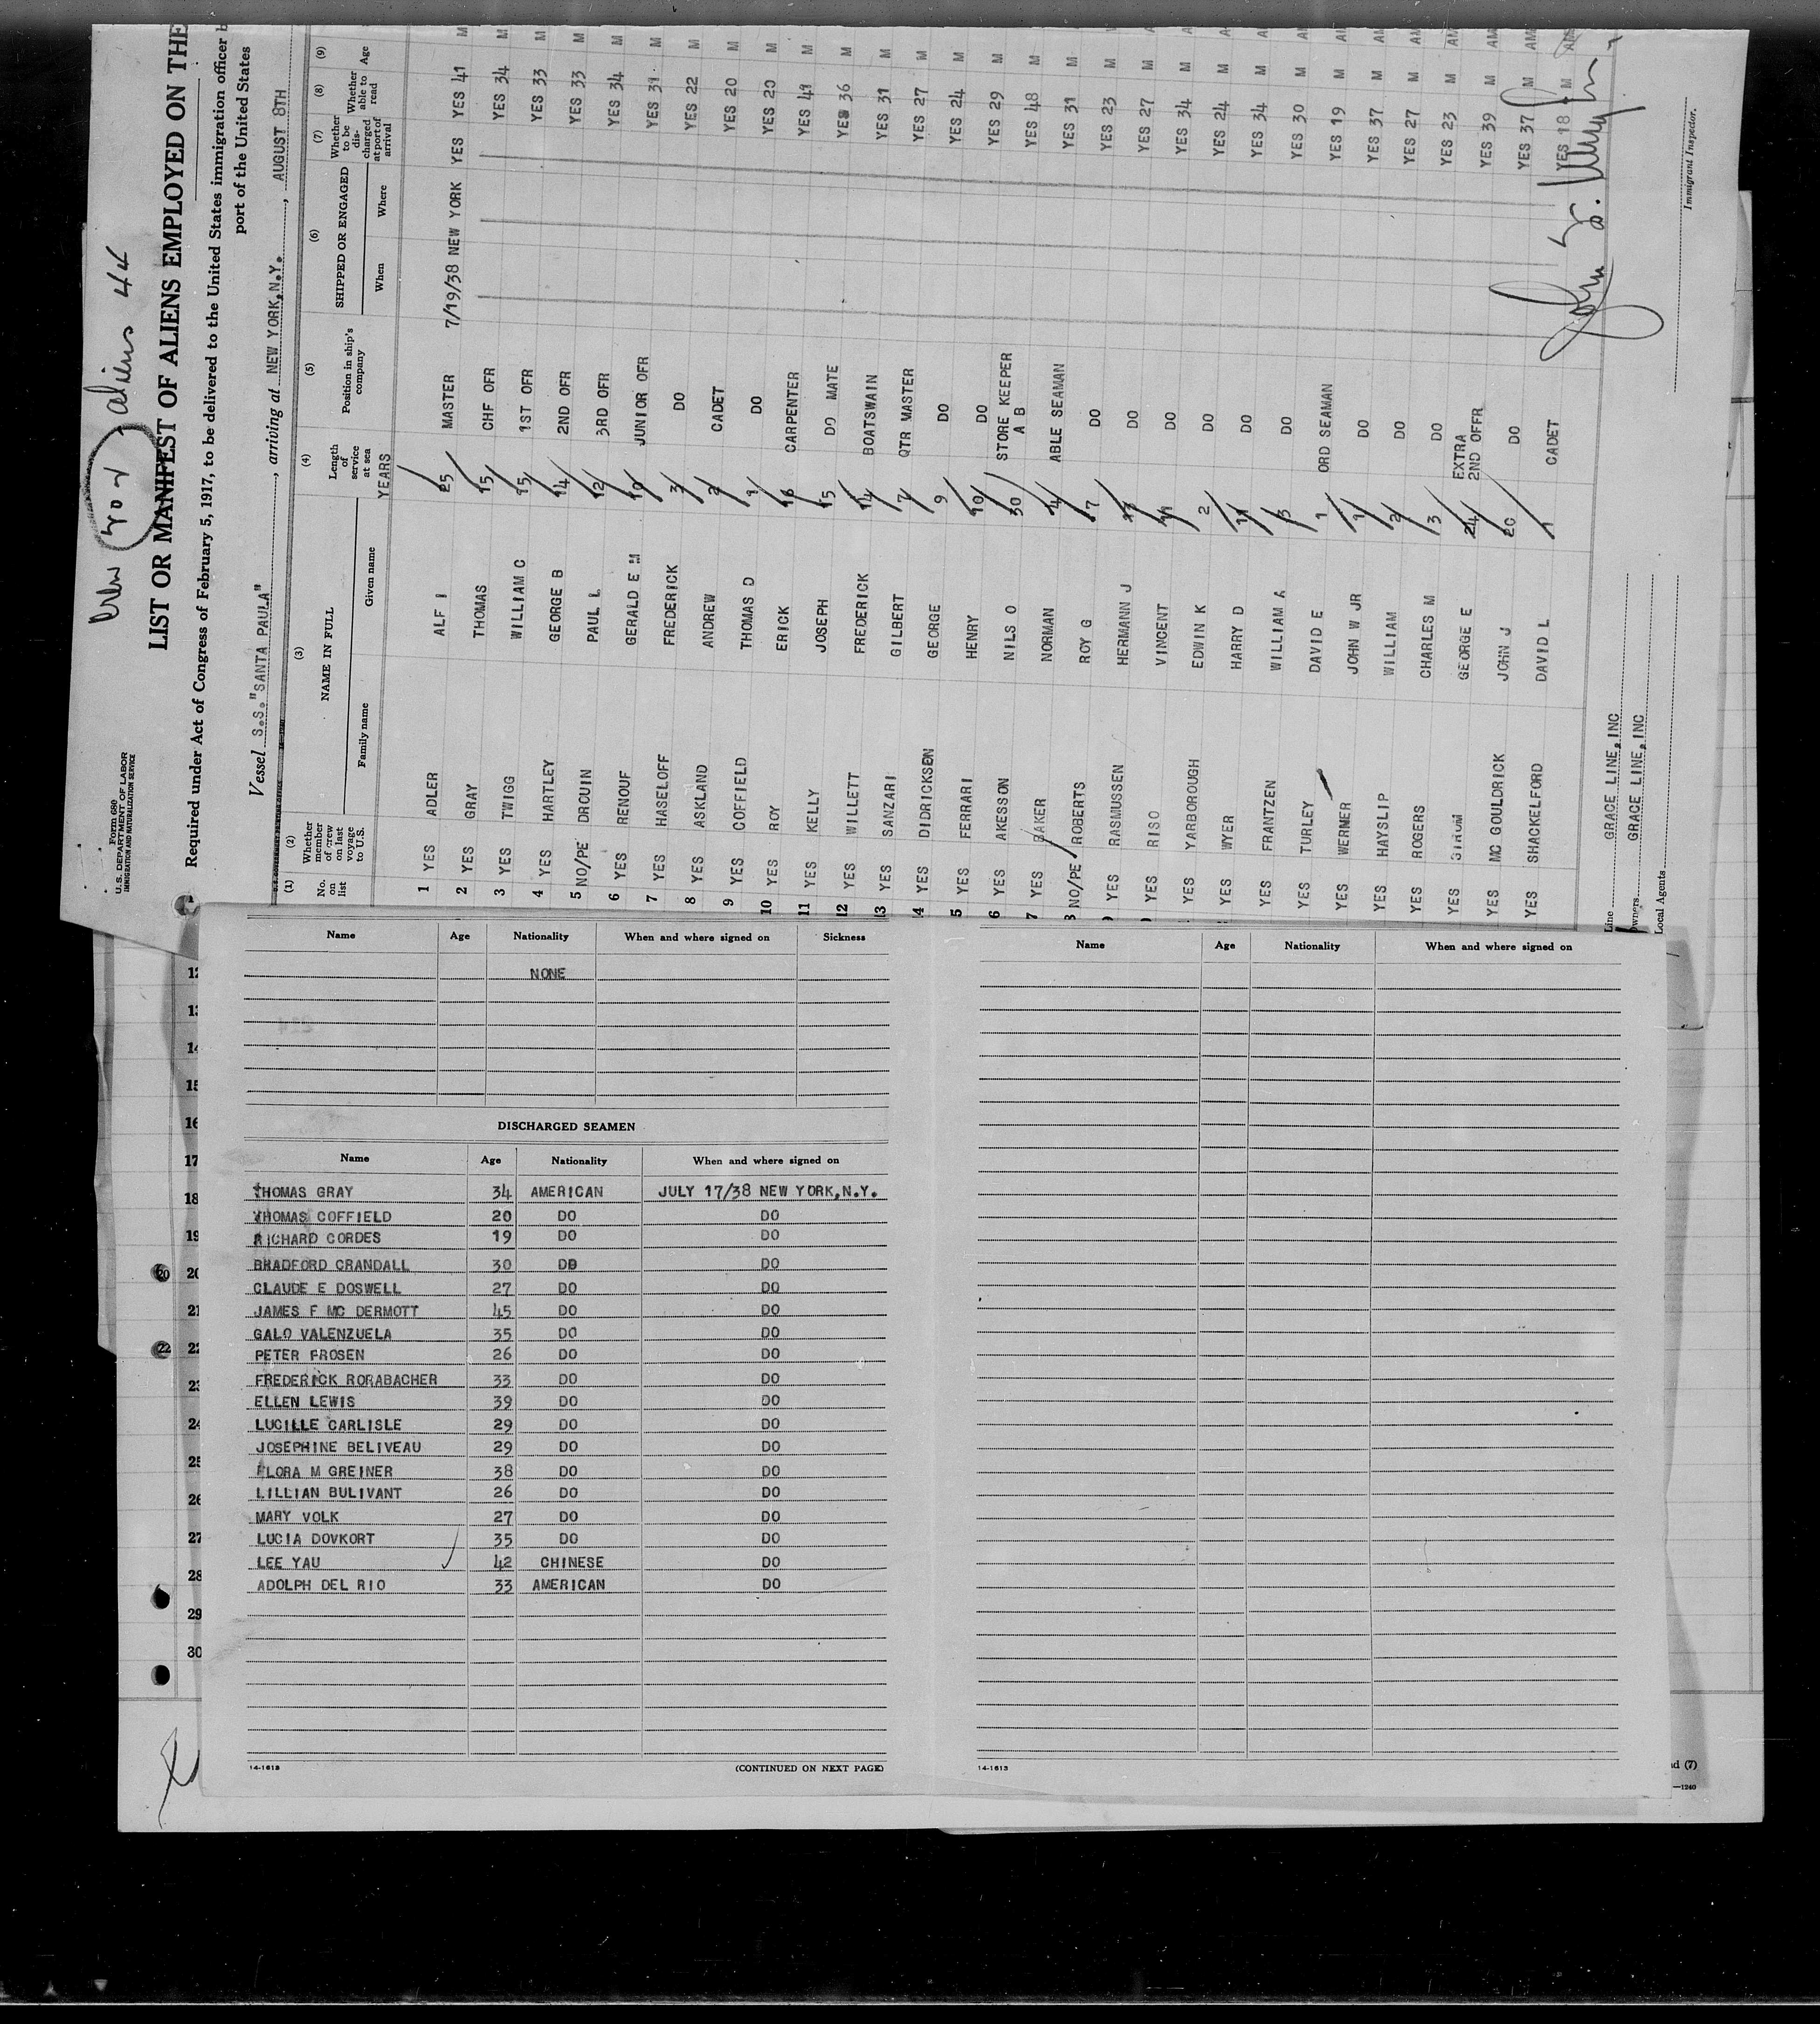 Crew 202 aliens 44
Form 680
U.S. DEPARTMENT OF LABOR
IMMIGRATION AND NATURALIZATION SERVICE
LIST OR MANIFEST OF ALIENS EMPLOYED ON THE
Required under Act of Congress of February 5, 1917, to be delivered to the United States immigration officer b
port of the United States
Vessel S.S."SANTA PAULA", arriving at NEW YORK,N.Y., AUGUST 8TH
(1) (2) (3) (4) (5) (6) (7) (8) (9)
No. on list
Whether member of crew on last voyage to U.S.
NAME IN FULL
Family name Given name
Length of service at sea
YEARS
Position in ship's company
SHIPPED OR ENGAGED
When Where
Whether to be discharged at port of arrival
Whether able to read
Age
1 YES ADLER ALF I 25 MASTER 7/19/38 NEW YORK YES YES 41 M
2 YES GRAY THOMAS 15 CHF OFR YES 34 M
3 YES TWIGG WILLIAM C 15 1ST OFR YES 33 M
4 YES HARTLEY GEORGE B 14 2ND OFR YES 33 M
5 NO/PE DROUIN PAUL L 12 3RD OFR YES 34 M
6 YES RENOUF GERALD E M 10 JUNIOR OFR YES 31 M
7 YES HASELOFF FREDERICK 3 DO YES 22 M
8 YES ASKLAND ANDREW 2 CADET YES 20 M
9 YES COFFIELD THOMAS D 1 DO YES 20 M
10 YES ROY ERICK 16 CARPENTER YES 41 M
11 YES KELLY JOSEPH 15 DO MATE YES 36 M
12 YES WILLETT FREDERICK 14 BOATSWAIN YES 31 M
13 YES SANZARI GILBERT 7 QTR MASTER YES 27 M
4 YES DIDRICKSEN GEORGE 9 DO YES 24 M
5 YES FERRARI HENRY 10 DO YES 29 M
6 YES AKESSON NILS O 30 STORE KEEPER A B YES 48 M
7 YES BAKER NORMAN 14 ABLE SEAMAN YES 31 M
8 NO/PE ROBERTS ROY G 7 DO YES 23 M
9 YES RASMUSSEN HERMANN J DO YES 27 M
YES RISO VINCENT 11 DO YES 34 M
YES YARBOROUGH EDWIN K 2 DO YES 24 M
YES WYER HARRY D 11 DO YES 34 M
YES FRANTZEN WILLIAM A 3 DO YES 30 M
YES TURLEY DAVID E 1 ORD SEAMAN YES 19 M
YES WERNER JOHN W JR 1 DO YES 37 M
YES HAYSLIP WILLIAM 2 DO YES 27 M
YES ROGERS CHARLES M 3 DO YES 23 M
YES GEORGE E 24 EXTRA 2ND OFFR YES 39 M
YES MC GOULDRICK JOHN J 20 DO YES 37 M
YES SHACKELFORD DAVID L 1 CADET YES 18 M
Line GRACE LINE,INC
Owners GRACE LINE,INC
Local Agents
Immigrant Inspector.
Name Age Nationality When and where signed on Sickness
NONE
DISCHARGED SEAMEN
Name Age Nationality When and where signed on
THOMAS GRAY 34 AMERICAN JULY 17/38 NEW YORK,N.Y.
THOMAS COFFIELD 20 DO DO
RICHARD CORDES 19 DO DO
BRADFORD CRANDALL 30 DO DO
CLAUDE E DOSWELL 27 DO DO
JAMES F MC DERMOTT 45 DO DO
GALO VALENZUELA 35 DO DO
PETER FROSEN 26 DO DO
FREDERICK RORABACHER 33 DO DO
ELLEN LEWIS 39 DO DO
LUCILLE CARLISLE 29 DO DO
JOSEPHINE BELIVEAU 29 DO DO
FLORA M GREINER 38 DO DO
LILLIAN BULIVANT 26 DO DO
MARY VOLK 27 DO DO
LUCIA DOVKORT 35 DO DO
LEE YAU 42 CHINESE DO
ADOLPH DEL RIO 33 AMERICAN DO
14-1613 (CONTINUED ON NEXT PAGE)
Name Age Nationality When and where signed on
14-1613
16
17
18
19
20 20
21
22
23
24
25
26
27
28
29
30
(7)
—1240